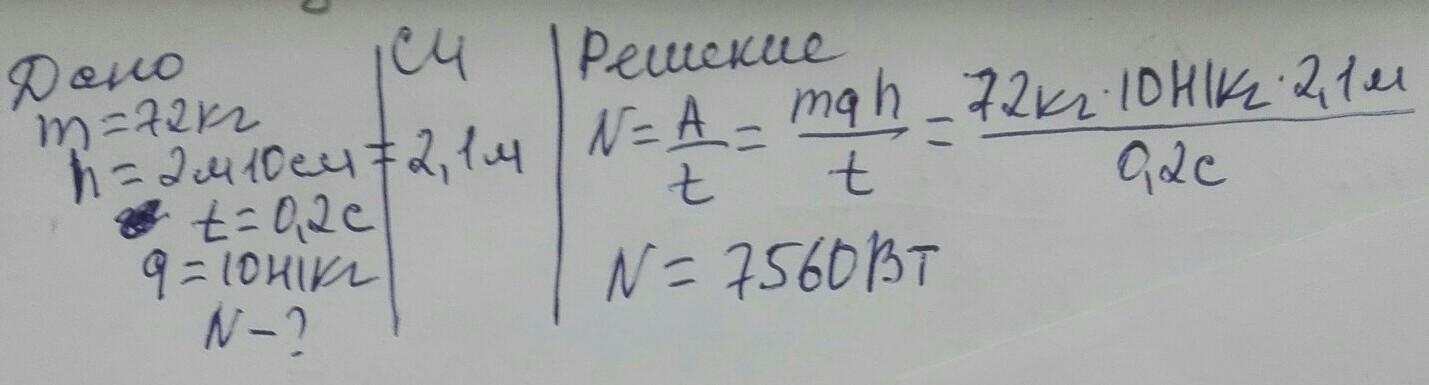 Дано
m=72кг
h=2м10см=2,1м
t=0,2с
g=10Н/кг
N-?
СИ
Решение
N=A/t=mgh/t=72кг·10Н/кг·2,1м/0,2с
N=7560Вт